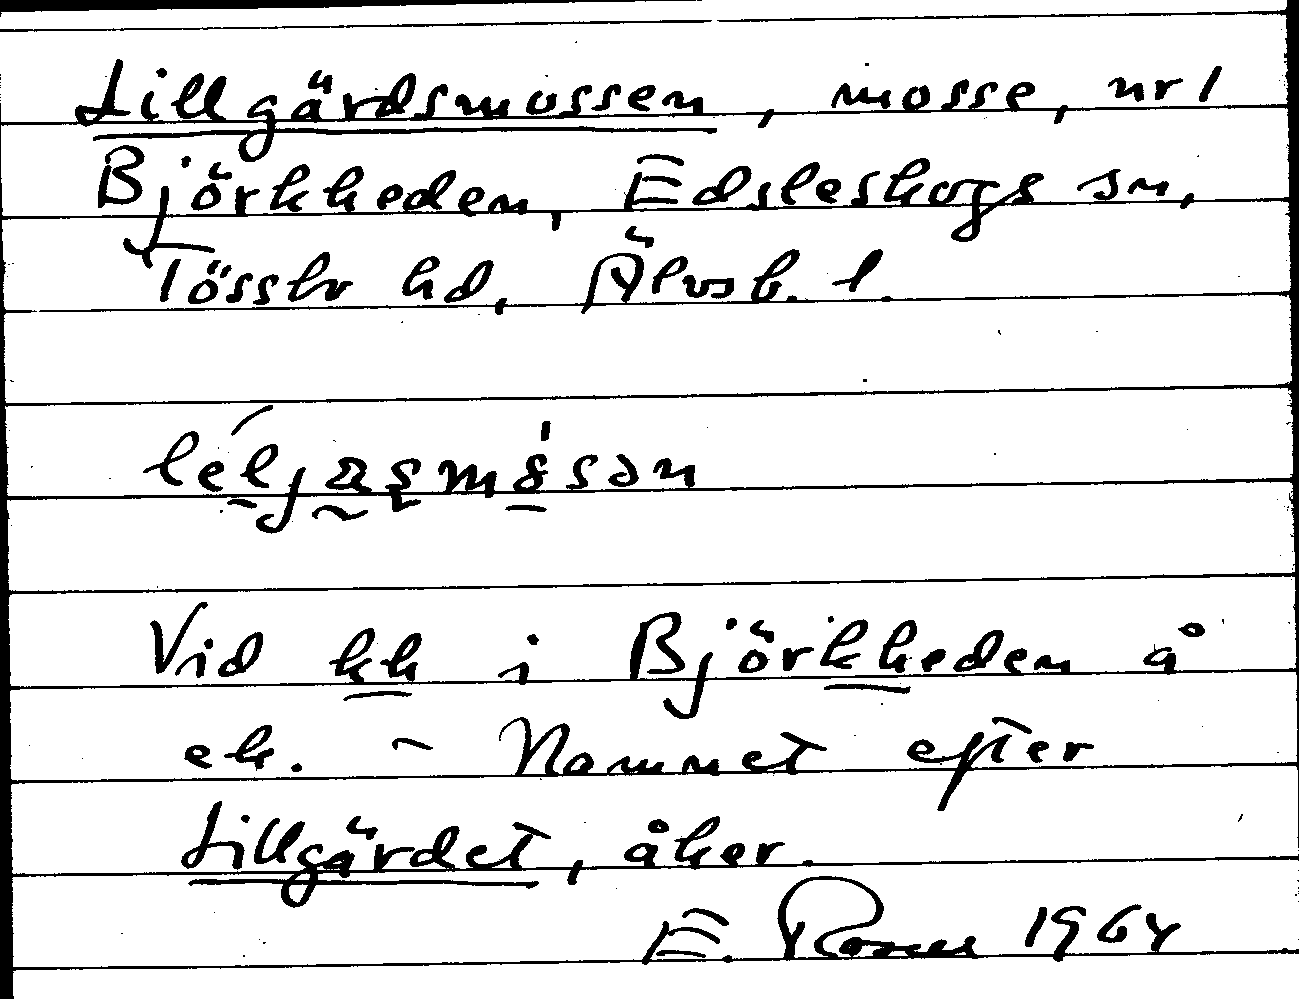 Lillgärdsmossen, mosse, nr 1
Björkheden, Edsleskogs sn,
Tössbo hd, Älvsb. l.
Vid kk i Björkheden å
ek. - Namnet efter
Lillgärdet, åker.
E. 1964